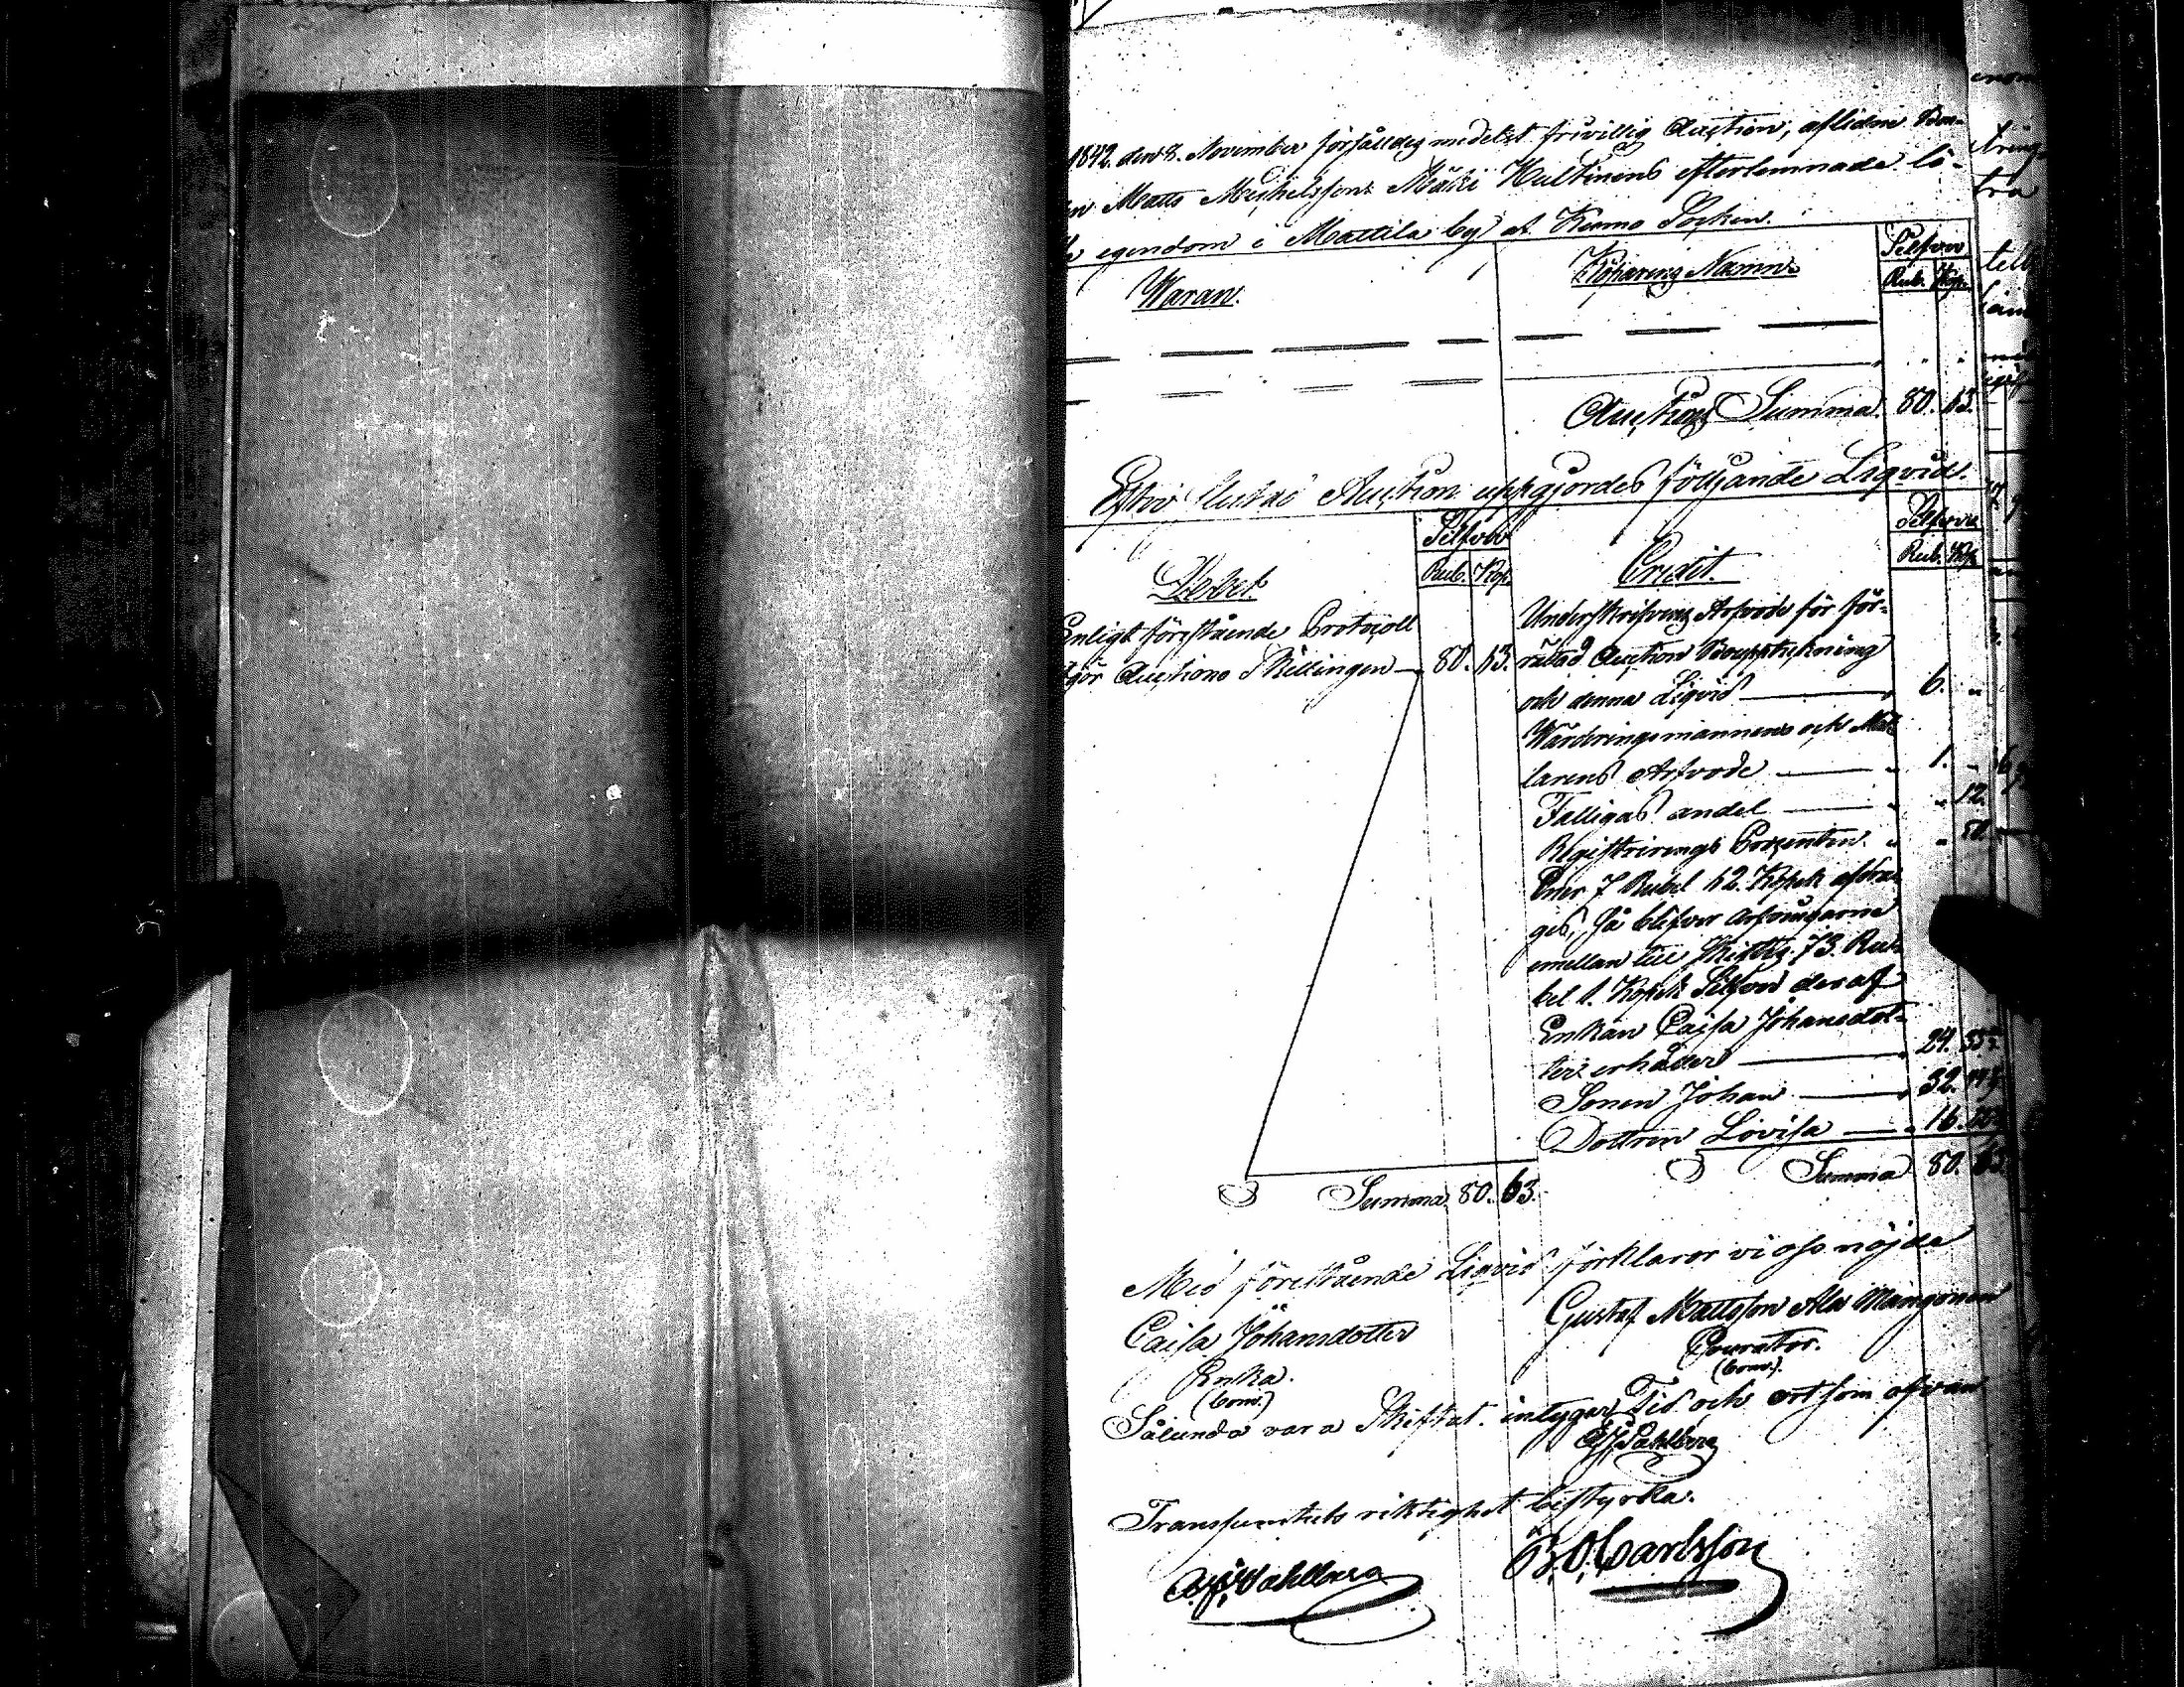 1842. den 8. November försåldes medelst frivillig Auction, aflidne Bon-
Matts Michelsson Mäki Hultinens efterlemnade lö-
egendom i Mattila by af Kumo Socken.
Waran.
Köparens Namn.
Silfver
Rub. Kop.
Auctions Summa 80. 63.
Efter slutad Auction uppgjordes följande Liqvid.
Debet
Silfver
Rub. Kop.
Enligt förestående Protocoll
gör Auctions Skillingen 80. 63.
Summa 80. 63.
Credit.
Silfver
Rub. Kop.
Underskrifvens Arfvode för för-
rättad Auction Bouppteckning
och denna Liqvid 6. "
Wärderingsmännens och Mäk-
larens Arfvode 1. "
Fattigas andel " 12.
Registrerings Procenten " 50.
7 Rubel 62. Kopek afdra-
ges, så blifver arfvingarne
emellan till skiftes 73. Ru-
bel 1. Kopek Silfver deraf
Enkan Cajsa Johansdot-
ter erhåller 24.
Sonen Johan 32.
Dottren Lovisa 16.
Summa 80. 63.
Med förestående Liqvid förklarar vi oss nöjda
Caisa Johansdotter
Enka.
(bom.)
Gustaf Mattsson Ala Mangonen
Courator.
(bom.)
Sålunda vara Skiftat intygar, Tid och ort som ofvan
Transumtets riktighet bestyrka.
B. O. Carlsson